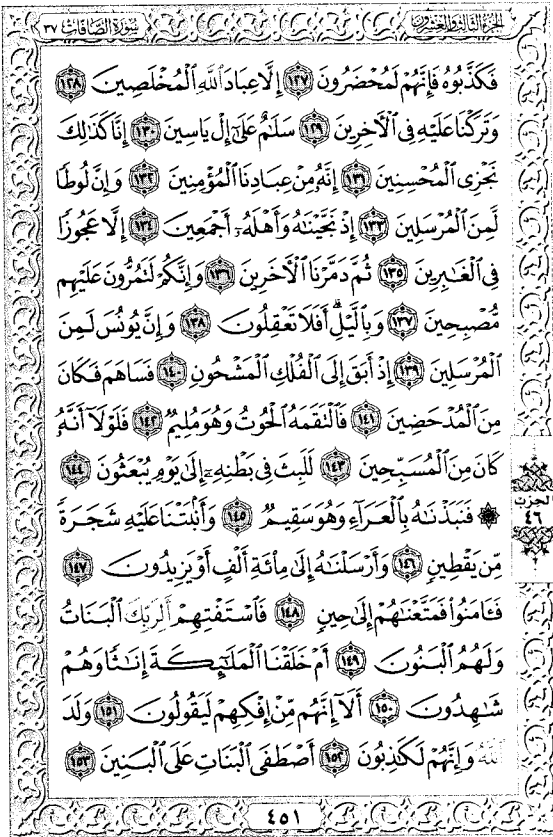 الجزء الثالث والعشرون
سورة الصافات ٣٧
فَكَذَّبُوهُ فَإِنَّهُمْ لَمُحْضَرُونَ ١٢٧ إِلَّا عِبَادَ اللَّهِ الْمُخْلَصِينَ ١٢٨
وَتَرَكْنَا عَلَيْهِ فِي الْآخِرِينَ ١٢٩ سَلَٰمٌ عَلَىٰٓ إِلْ يَاسِينَ ١٣٠ إِنَّا كَذَٰلِكَ
نَجْزِى الْمُحْسِنِينَ ١٣١ إِنَّهُۥ مِنْ عِبَادِنَا الْمُؤْمِنِينَ ١٣٢ وَإِنَّ لُوطًا
لَّمِنَ الْمُرْسَلِينَ ١٣٣ إِذْ نَجَّيْنَٰهُ وَأَهْلَهُۥٓ أَجْمَعِينَ ١٣٤ إِلَّا عَجُوزًا
فِى الْغَٰبِرِينَ ١٣٥ ثُمَّ دَمَّرْنَا الْآخَرِينَ ١٣٦ وَإِنَّكُمْ لَتَمُرُّونَ عَلَيْهِم
مُّصْبِحِينَ ١٣٧ وَبِالَّيْلِۗ أَفَلَا تَعْقِلُونَ ١٣٨ وَإِنَّ يُونُسَ لَمِنَ
الْمُرْسَلِينَ ١٣٩ إِذْ أَبَقَ إِلَى الْفُلْكِ الْمَشْحُونِ ١٤٠ فَسَاهَمَ فَكَانَ
مِنَ الْمُدْحَضِينَ ١٤١ فَالْتَقَمَهُ الْحُوتُ وَهُوَ مُلِيمٌ ١٤٢ فَلَوْلَآ أَنَّهُۥ
كَانَ مِنَ الْمُسَبِّحِينَ ١٤٣ لَلَبِثَ فِى بَطْنِهِۦٓ إِلَىٰ يَوْمِ يُبْعَثُونَ ١٤٤
۞ فَنَبَذْنَٰهُ بِالْعَرَآءِ وَهُوَ سَقِيمٌ ١٤٥ وَأَنۢبَتْنَا عَلَيْهِ شَجَرَةً
مِّن يَقْطِينٍ ١٤٦ وَأَرْسَلْنَٰهُ إِلَىٰ مِا۟ئَةِ أَلْفٍ أَوْ يَزِيدُونَ ١٤٧
فَـَٔامَنُوا۟ فَمَتَّعْنَٰهُمْ إِلَىٰ حِينٍ ١٤٨ فَاسْتَفْتِهِمْ أَلِرَبِّكَ الْبَنَاتُ
وَلَهُمُ الْبَنُونَ ١٤٩ أَمْ خَلَقْنَا الْمَلَٰٓئِكَةَ إِنَٰثًا وَهُمْ
شَٰهِدُونَ ١٥٠ أَلَآ إِنَّهُم مِّنْ إِفْكِهِمْ لَيَقُولُونَ ١٥١ وَلَدَ
اللَّهُ وَإِنَّهُمْ لَكَٰذِبُونَ ١٥٢ أَصْطَفَى الْبَنَاتِ عَلَى الْبَنِينَ ١٥٣
الحزب
٤٦
٤٥١